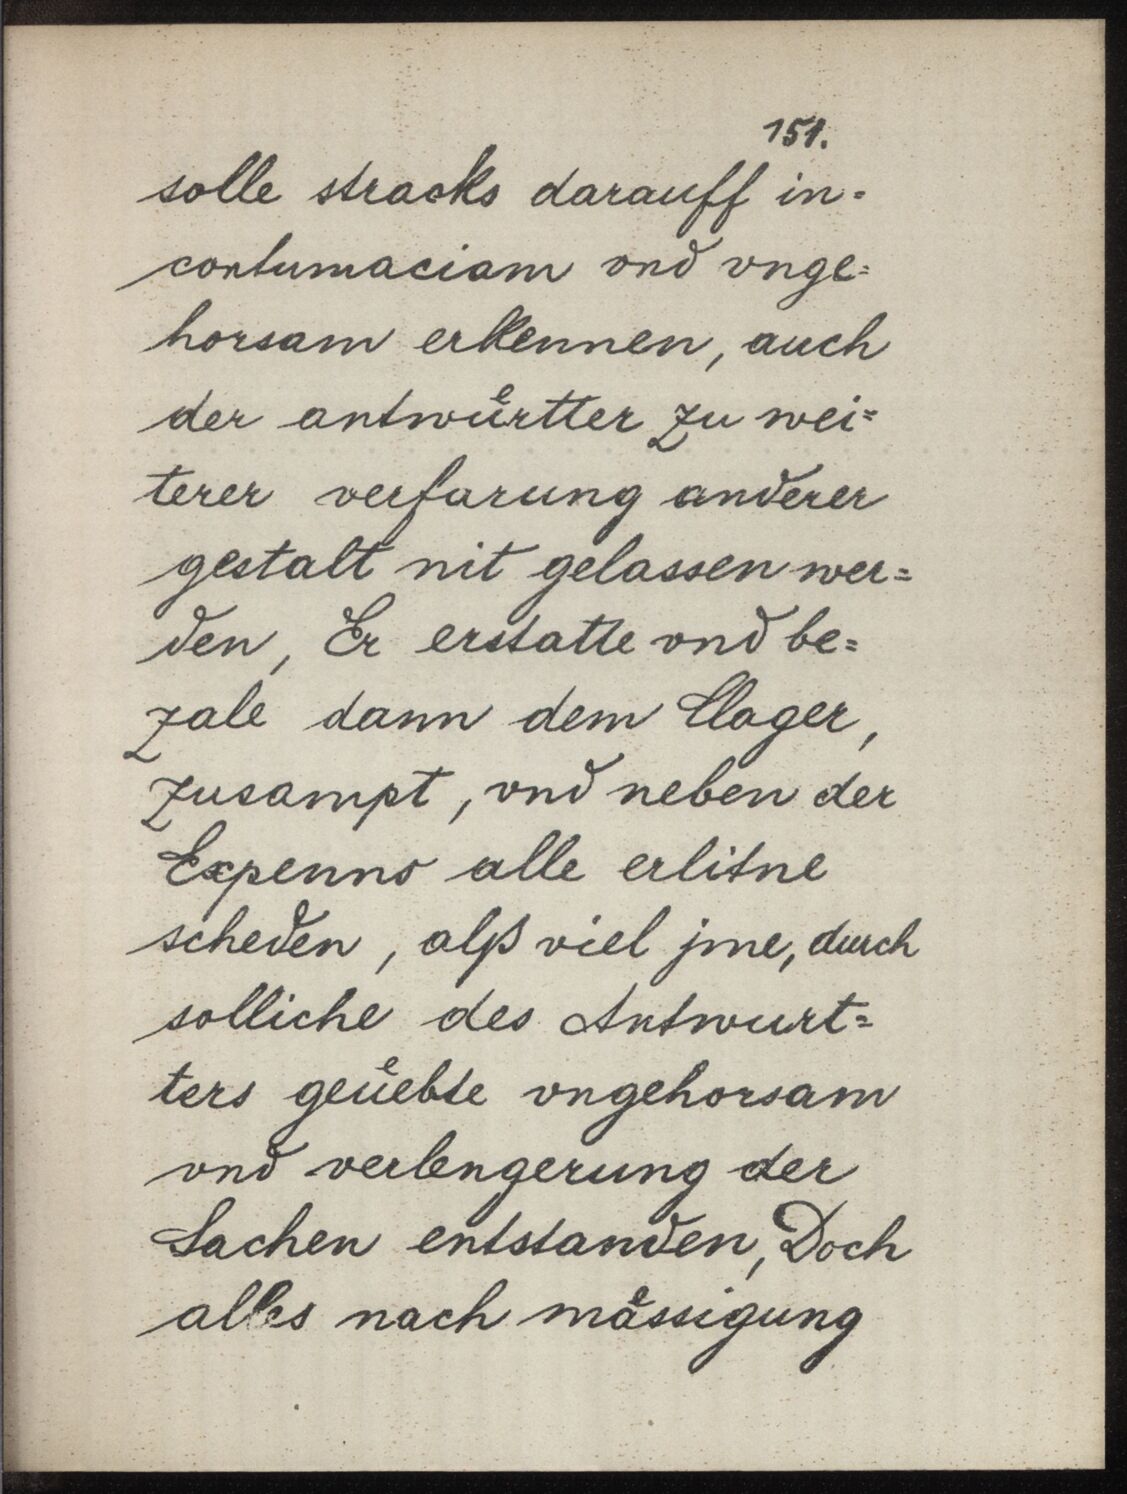 151.
solle stracks darauff in-
contumaciam vnd vnge=
horsam erkennen, auch
der antwuͤrtter zu wei=
terer verfarung anderer
gestalt nit gelassen wer=
den, Er erstatte vnd be=
zale dann dem Clager,
zusampt, vnd neben der
Expenns alle erlitne
scheden, alß viel jme, durch
solliche des Antwurt=
ters geuͤebte vngehorsam
vnd verlengerung der
Sachen entstanden, Doch
alles nach maͤssigung